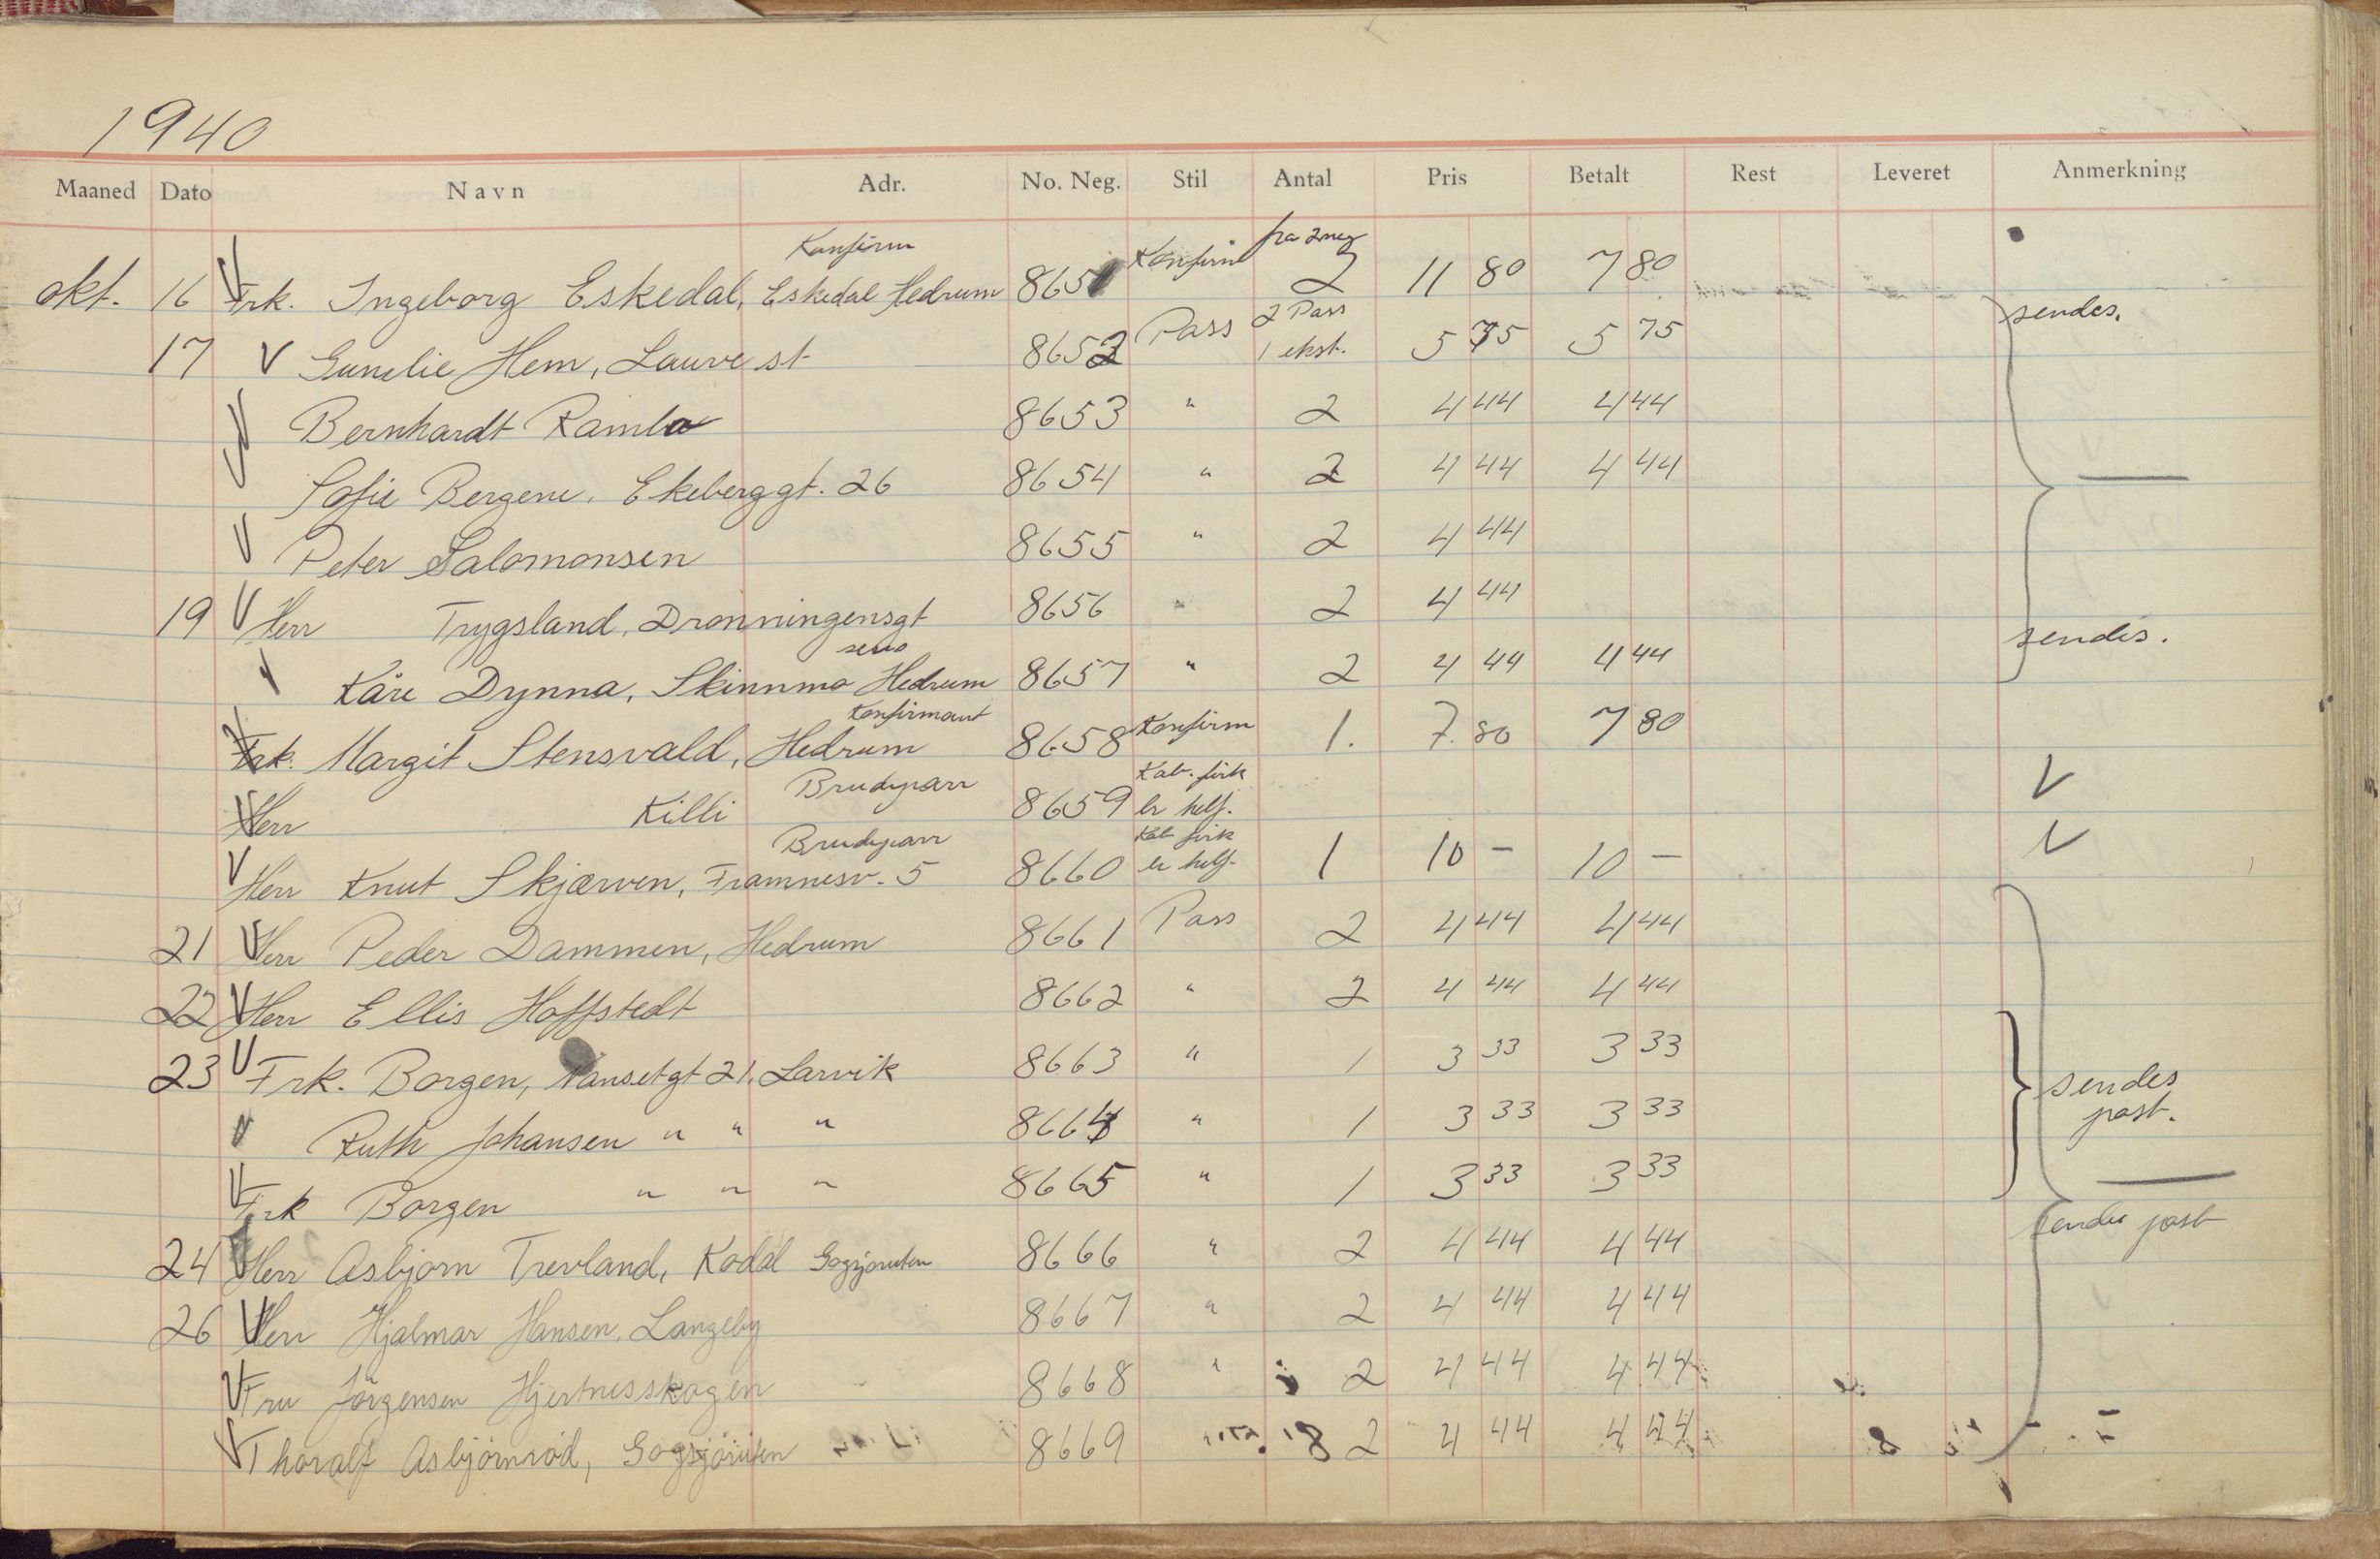 1940
Maaned Dato Navn Adr. No. Neg. Stil Antal Pris Betalt Rest Leveret Anmerkning
Konfirm fra 2 neg
okt. 16 Frk. Ingeborg Eskedal, Eskedal Hedrum 8651 Konfirm 2 11 80 7 80
2 Pass sendes.
17 Gunelie Hem, Lauve st 8652 Pass 1 ekst. 5 75 5 75
Bernhardt Ramlo 8653 " 2 4 44 4 44
Sofie Bergene, Ekeberggt. 26 8654 " 2 4 44 4 44
Peter Salomonsen 8655 " 2 4 44
19 Herr Trygsland, Dronningensgt 8656 " 2 4 44 sendes.
Kåre Dynna, Skinnmo Hedrum 8657 " 2 4 44 4 44
Konfirmant
Frk. Margit Stensvald, Hedrum 8658 Konfirm 1. 7. 80 7 80
Brudepar Kab.
Herr Killi 8659 er helf.
Brudepar Kab
Herr Knut Skjærven, Framnesv. 5 8660 er helf. 1 10 – 10 –
21 Herr Peder Dammen, Hedrum 8661 Pass 2 4 44 4 44
22 Herr Ellis Hoffstedt 8662 " 2 4 44 4 44
23 Frk. Borgen, Nansetgt 21. Larvik 8663 " 1 3 33 3 33 sendes
Ruth Johansen " " " 8664 " 1 3 33 3 33 post.
Frk Borgen " " " 8665 " 1 3 33 3 33
sendes post
24 Herr Asbjørn Trevland, Kodal Gogsjøruten 8666 " 2 4 44 4 44
26 Herr Hjalmar Hansen, Langeby 8667 " 2 4 44 4 44
Fru Jörgensen Hjertnesskogen 8668 " 2 4 44 4 44
Thoralf Asbjörnröd, Gogsjöruten 8669 2 4 44 4 44